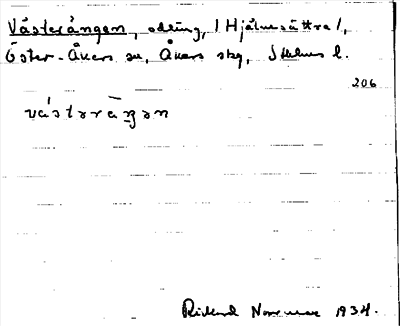 Västerängen, odling, /Hjälmsättra/,
Öster-Åkers sn, Åkers skg, Sthlms l.
206
västəràŋən
Rickard Norrman 1934.